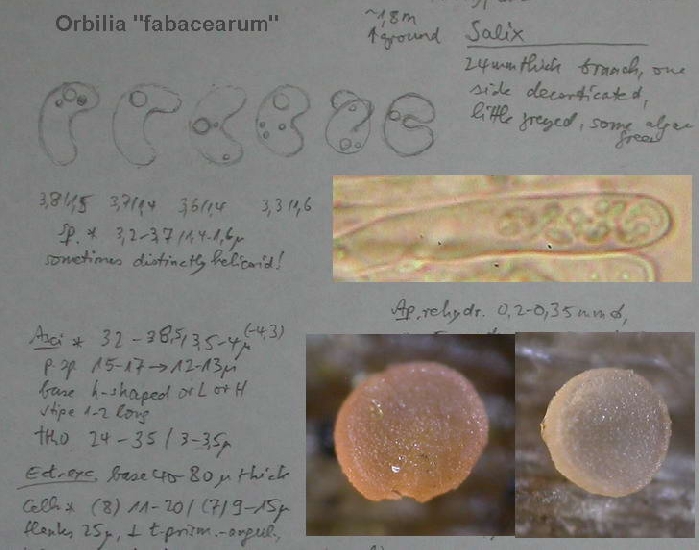 Orbilia "fabacearum"
~1,8m
↑ground
Salix
24mm thick branch, one
side decorticated,
little greyed, some algae
green
3,8/1,5 3,7/1,4 3,6/1,4 3,3/1,6
sp. * 3,2-3,7/1,4-1,6µ
sometimes distinctly helicoid!
Ap. rehydr. 0,2-0,35mm ø,
Asci * 32-38,5/3,5-4µ (-4,3)
p.sp. 15-17→12-13µ
base h-shaped or L or H
stipe 1-2 long
†H₂O 24-35/3-3,5µ
Ect. exc. base 40-80µ thick
Cells * (8)11-20/(7)9-15µ
flanks 25µ, ⊥ t.prism.-angul.,